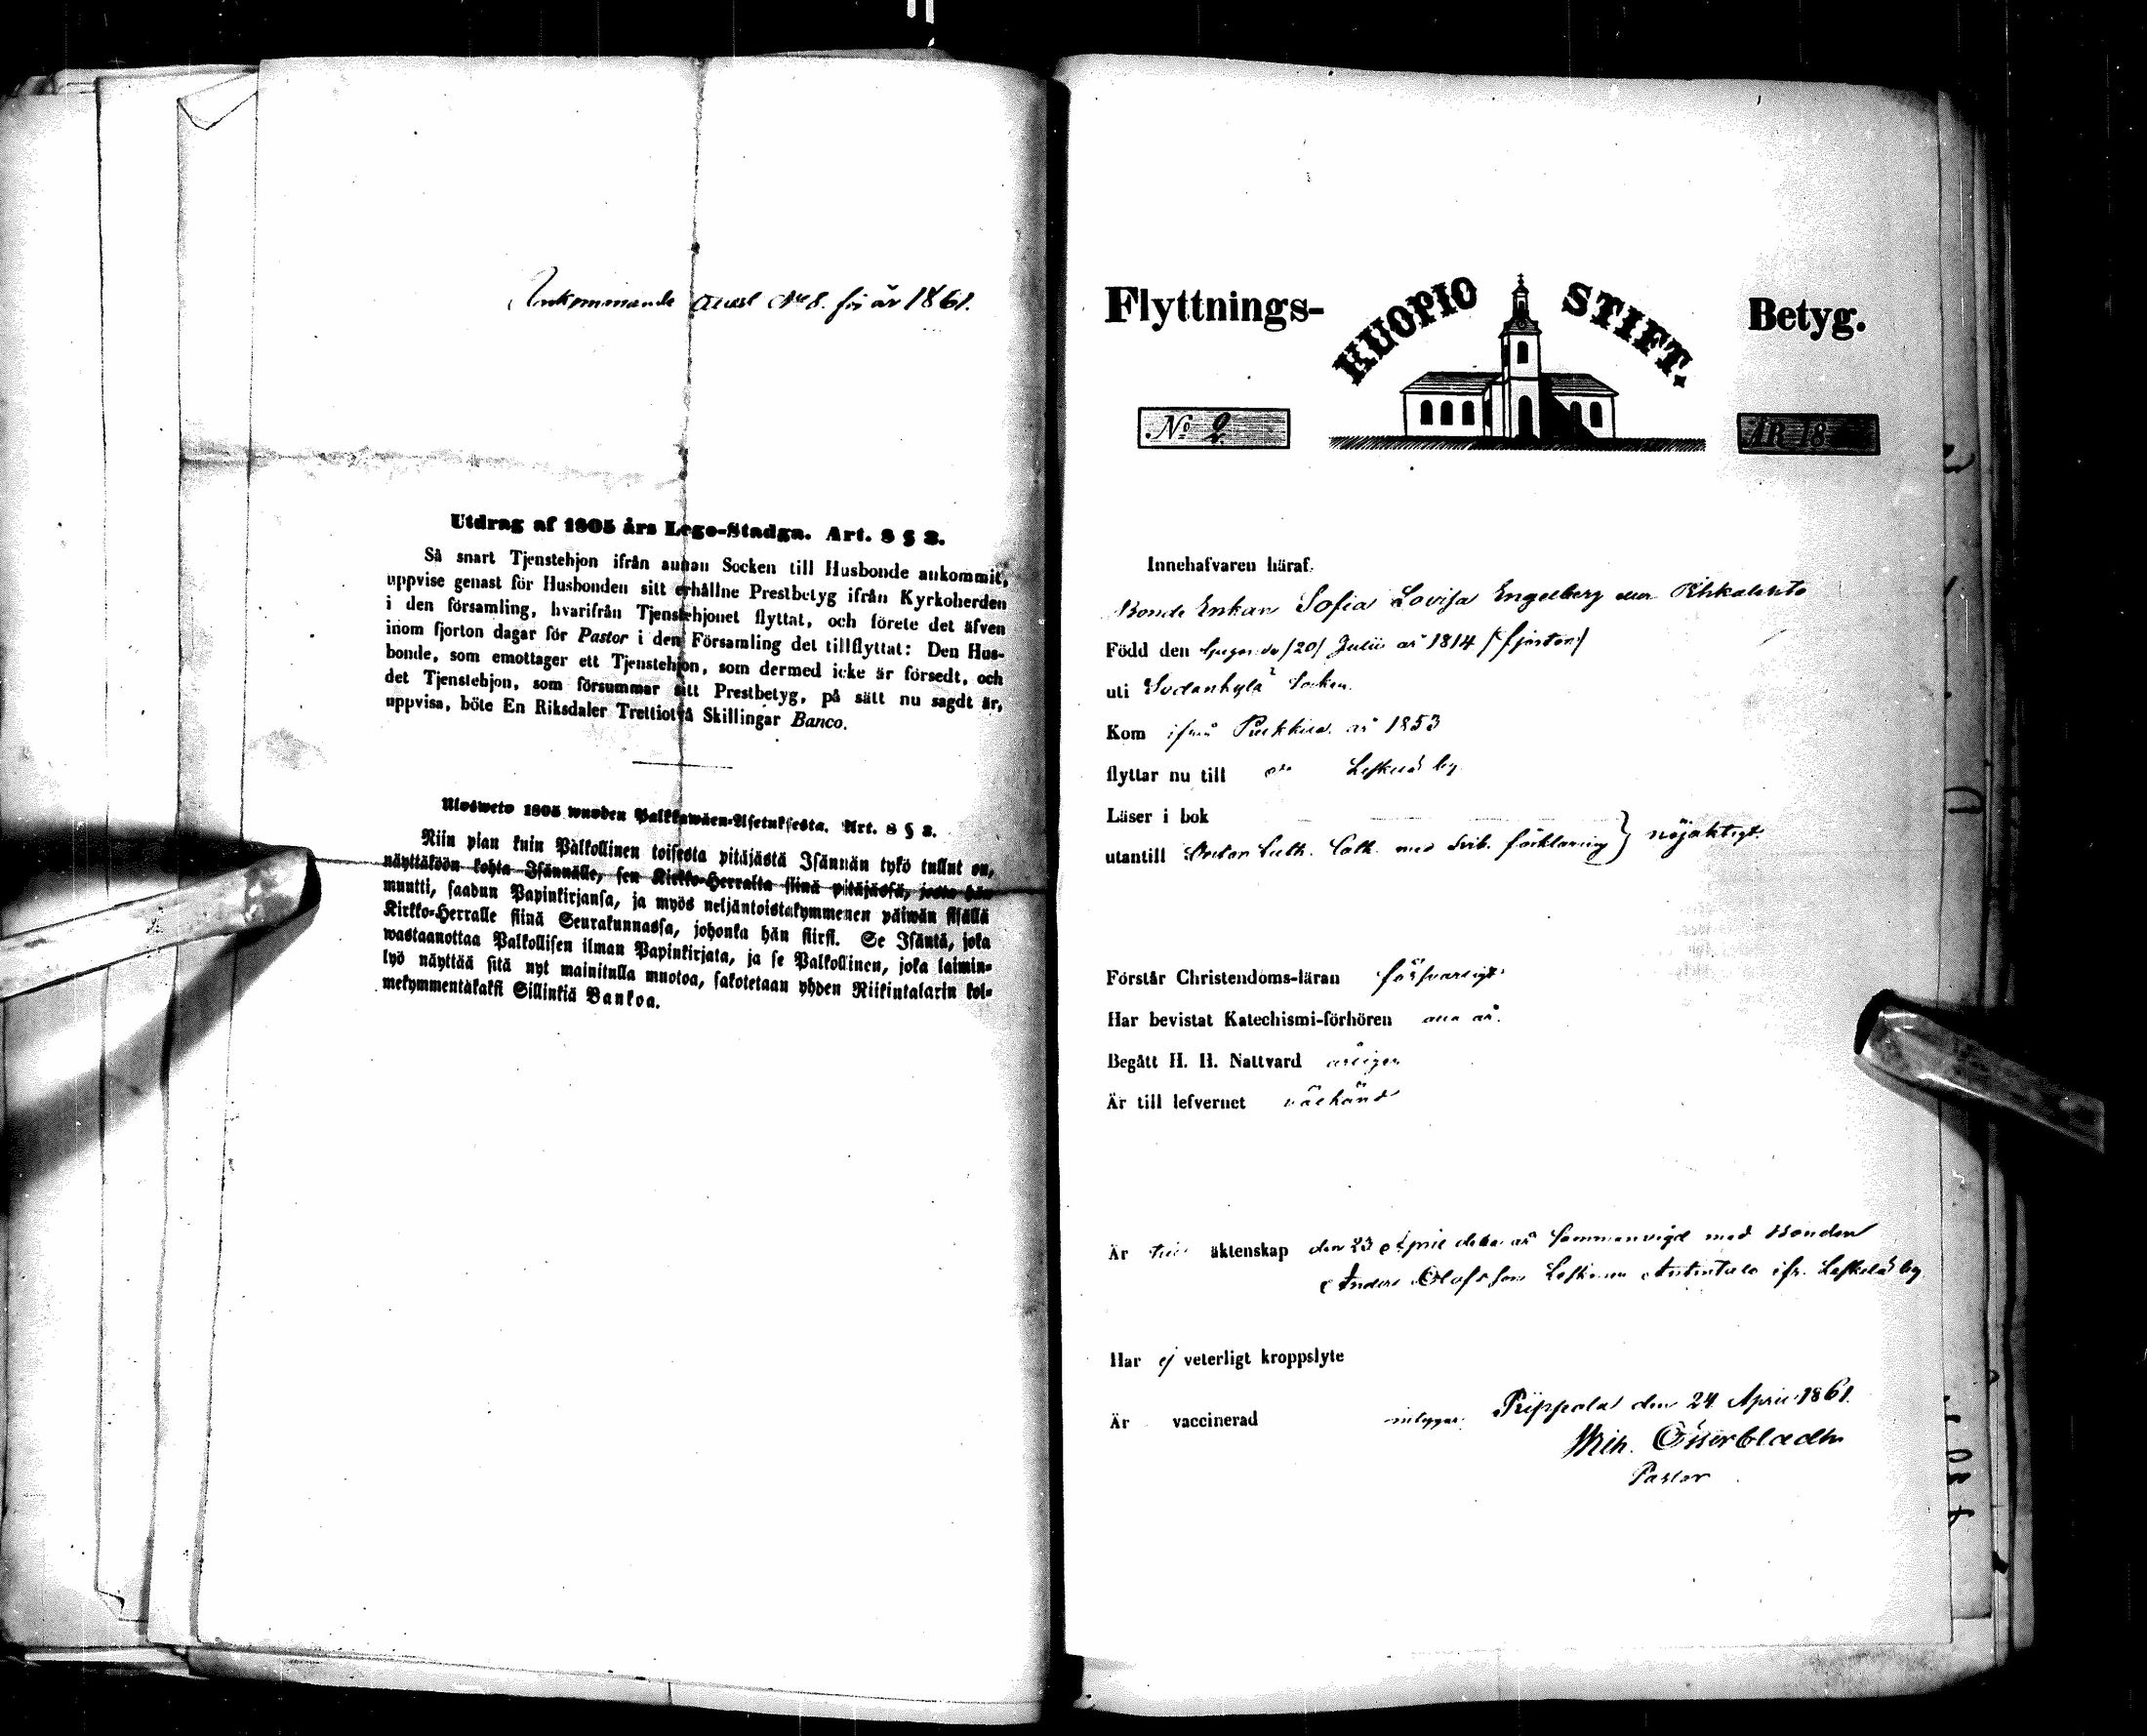 Ankommande attest No 8. för år 1861.
Utdrag af 1805 års Lego-Stadga. Art. 8 § 3.
Så snart Tjenstehjon ifrån annan Socken till Husbonde ankommit,
uppvise genast för Husbonden sitt erhållne Prestbetyg ifrån Kyrkoherden
i den församling, hvarifrån Tjenstehjonet flyttat, och förete det äfven
inom fjorton dagar för Pastor i den Församling det tillflyttat: Den Hus-
bonde, som emottager ett Tjenstehjon, som dermed icke är försedt, och
det Tjenstehjon, som försummar sitt Prestbetyg, på sätt nu sagdt är,
uppvisa, böte En Riksdaler Trettiotvå Skillingar Banco.
Ulosweto 1805 wuoden Palkkawäen-Asetuksesta. Art. 8 § 3.
Niin pian kuin Palkollinen toisesta pitäjästä Isännän tykö tullut on,
näyttäköön kohta Isännälle, sen Kirkko-Herralta siinä pitäjässä, josta hän
muutti, saadun Papinkirjansa, ja myös neljäntoistakymmenen päiwän sisällä
Kirkko-Herralle siinä Seurakunnassa, johonka hän siirsi. Se Isäntä, joka
wastaanottaa Palkollisen ilman Papinkirjata, ja se Palkollinen, joka laimin-
lyö näyttää sitä nyt mainitulla muotoa, sakotetaan yhden Riikintalarin kol-
mekymmentäkaksi Sillinkiä Bankoa.
Flyttnings- KUOPIO STIFT. Betyg.
No 2. ÅR 18
Innehafvaren häraf,
Bonde Enkan Sofia Lovisa Engelberg
Född den tjugonde /20/ Julii år 1814 /:fjorton:/
uti Sodankylä Socken.
Kom ifrån Pulkkila år 1853
flyttar nu till Leskelä by
Läser i bok
utantill Doctor Luth. Cath. med Svib. förklaring } nöjaktigt.
Förstår Christendoms-läran försvarligt
Har bevistat Katechismi-förhören alla år.
Begått H. H. Nattvard årligen
Är till lefvernet välkänd
Är till äktenskap den 23 April detta år Sammanvigd med Bonden
Anders Olofsson Leskinen Anttila ifr. Leskelä by
Har ej veterligt kroppslyte
Är vaccinerad intygar. Piippola den 24 April 1861.
Wilh. Österbladh
Pastor